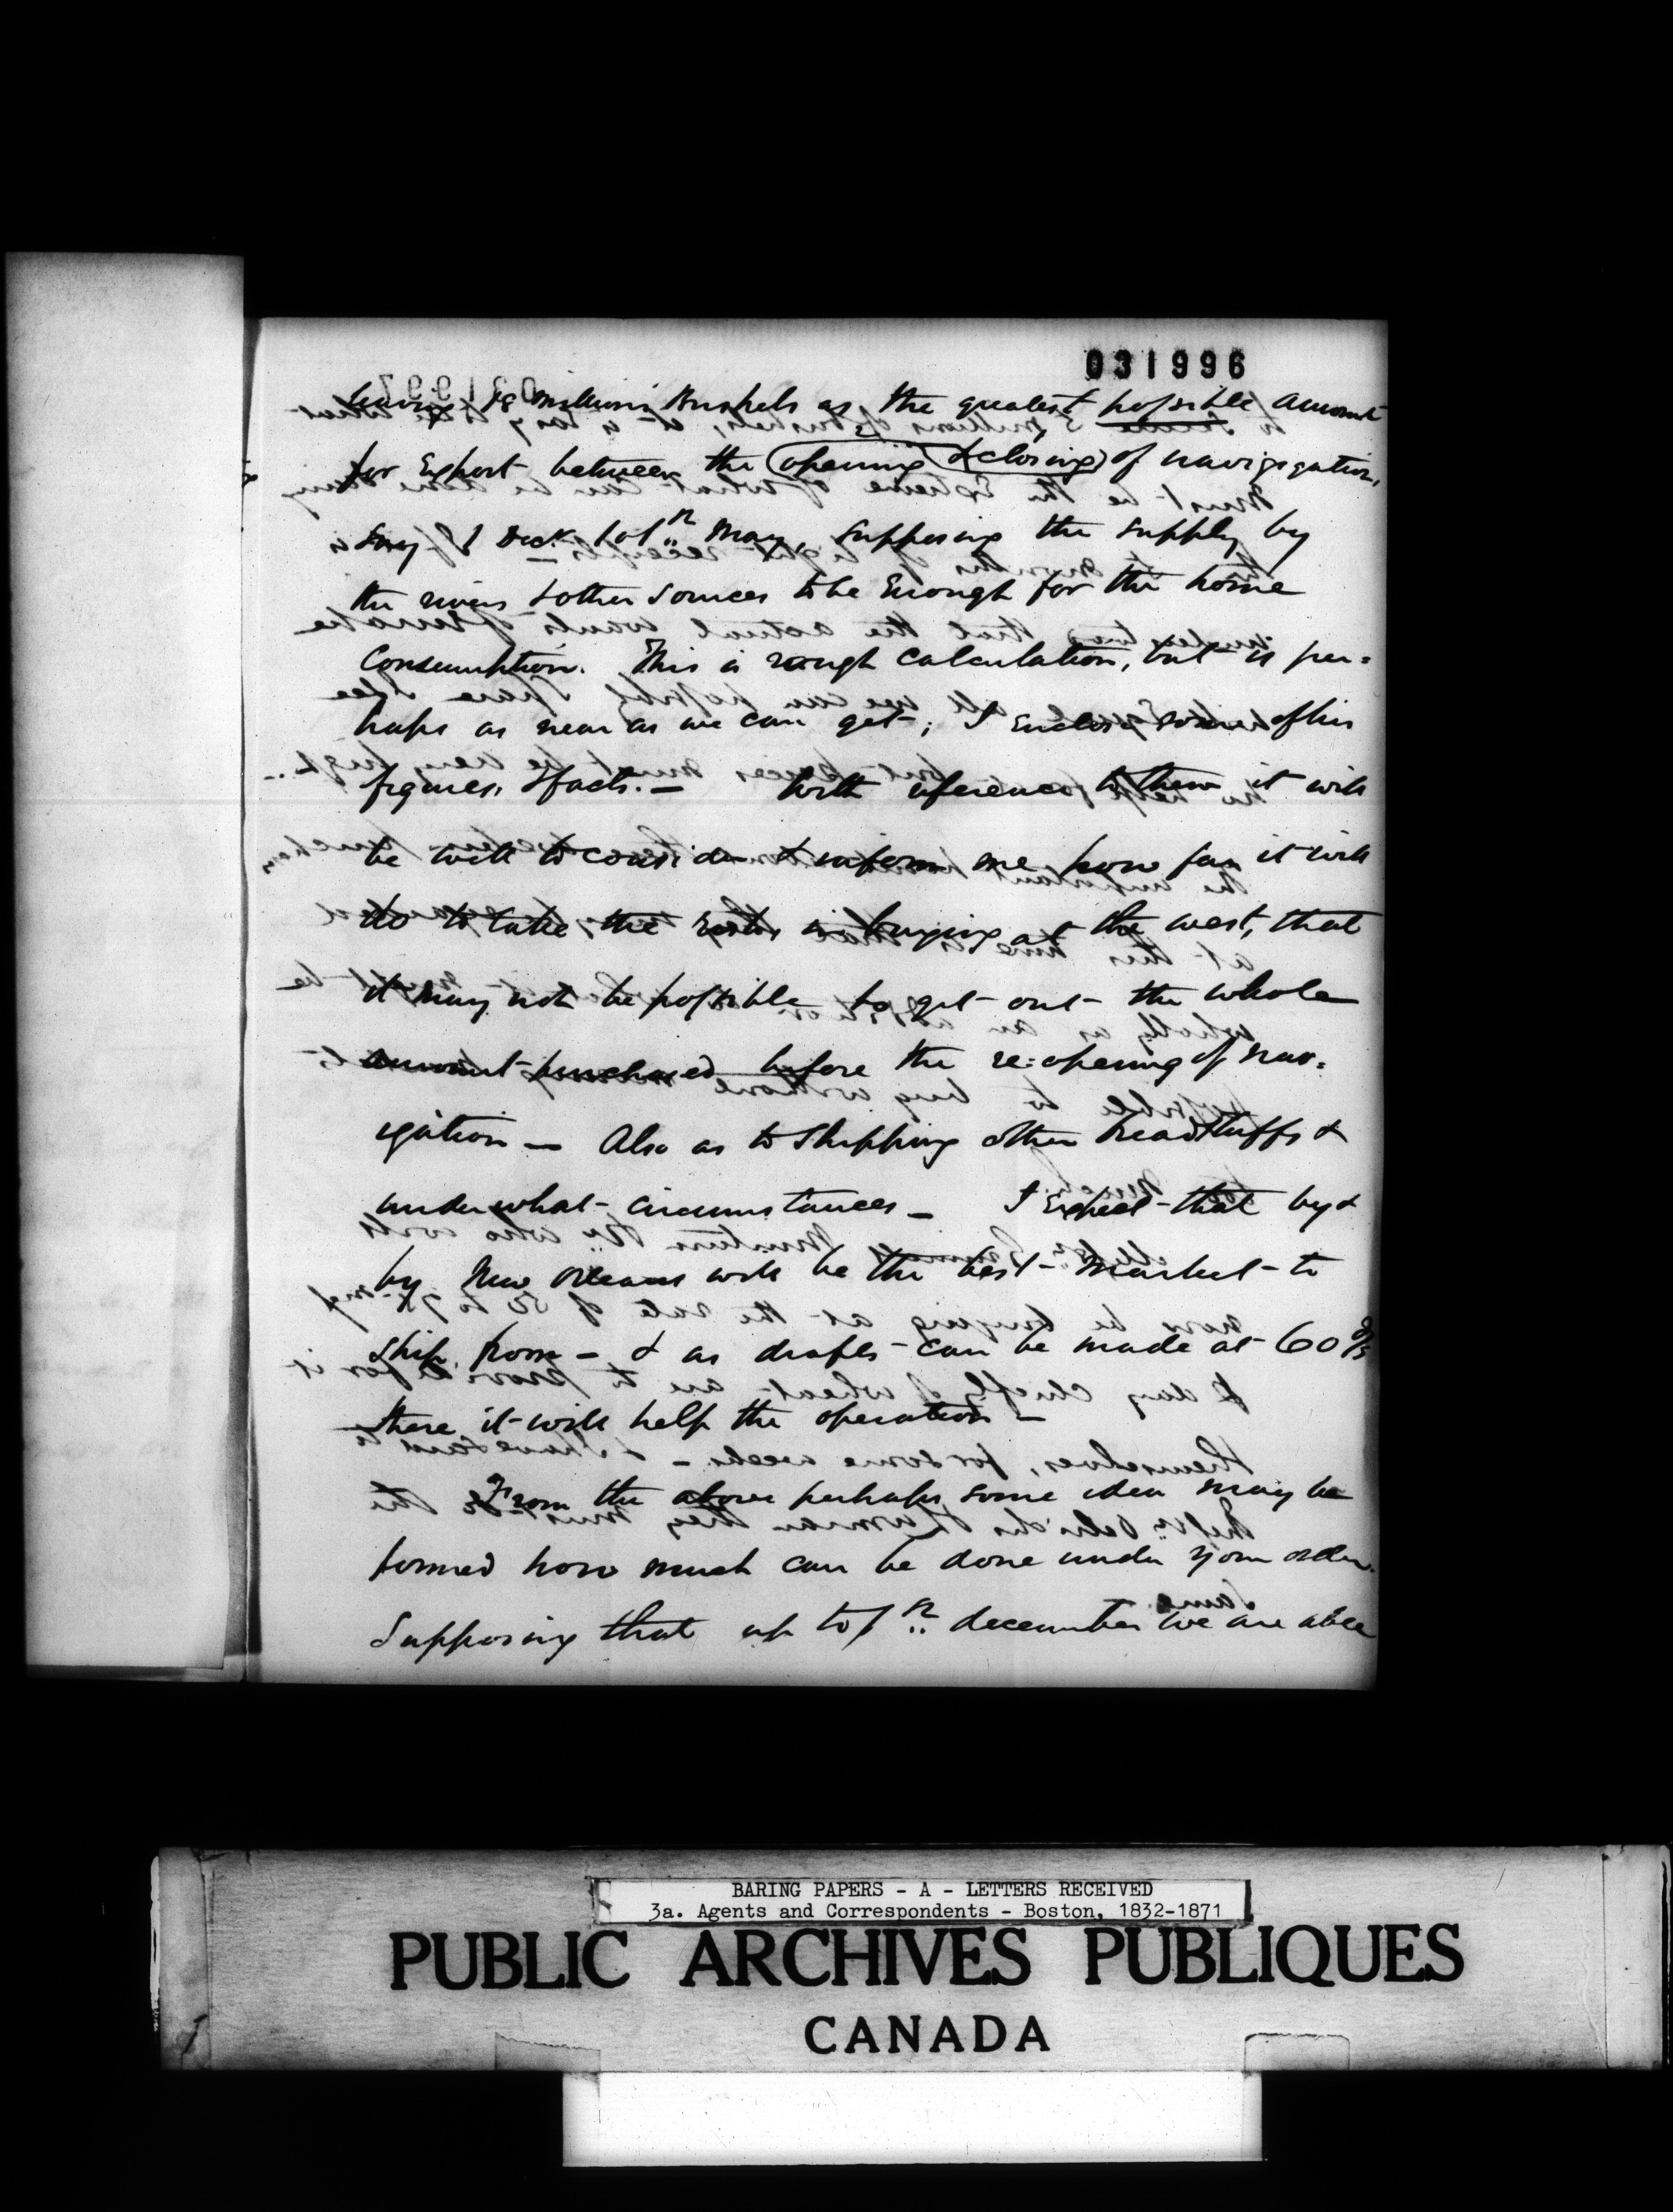 031996
leaving 18 millions Bushels as the greatest possible amount
for Export between the opening & closing of navigigation,
say 1 Decr to 1st May, supposing the supply by
the rivers & other sources to be Enough for the home
Consumption. This is rough calculation, but is per=
haps as near as we can get; I Enclose some of his
figures, & facts. — With reference to them it will
be well to consider & inform me how far it will
do to take the risk in buying at the west, that
it may not be possible to get out the whole
amount purchased before the re=opening of nav=
igation — Also as to shipping other breadstuffs &
under what circumstances — I Expect that by &
by New Orleans will be the best market to
ship from — & as drafts can be made at 60 d/s
there it will help the operation —
From the above perhaps some idea may be
formed how much can be done under your order.
Supposing that up to 1st december we are able
BARING PAPERS - A - LETTERS RECEIVED
3a. Agents and Correspondents - Boston, 1832-1871
PUBLIC ARCHIVES PUBLIQUES
CANADA